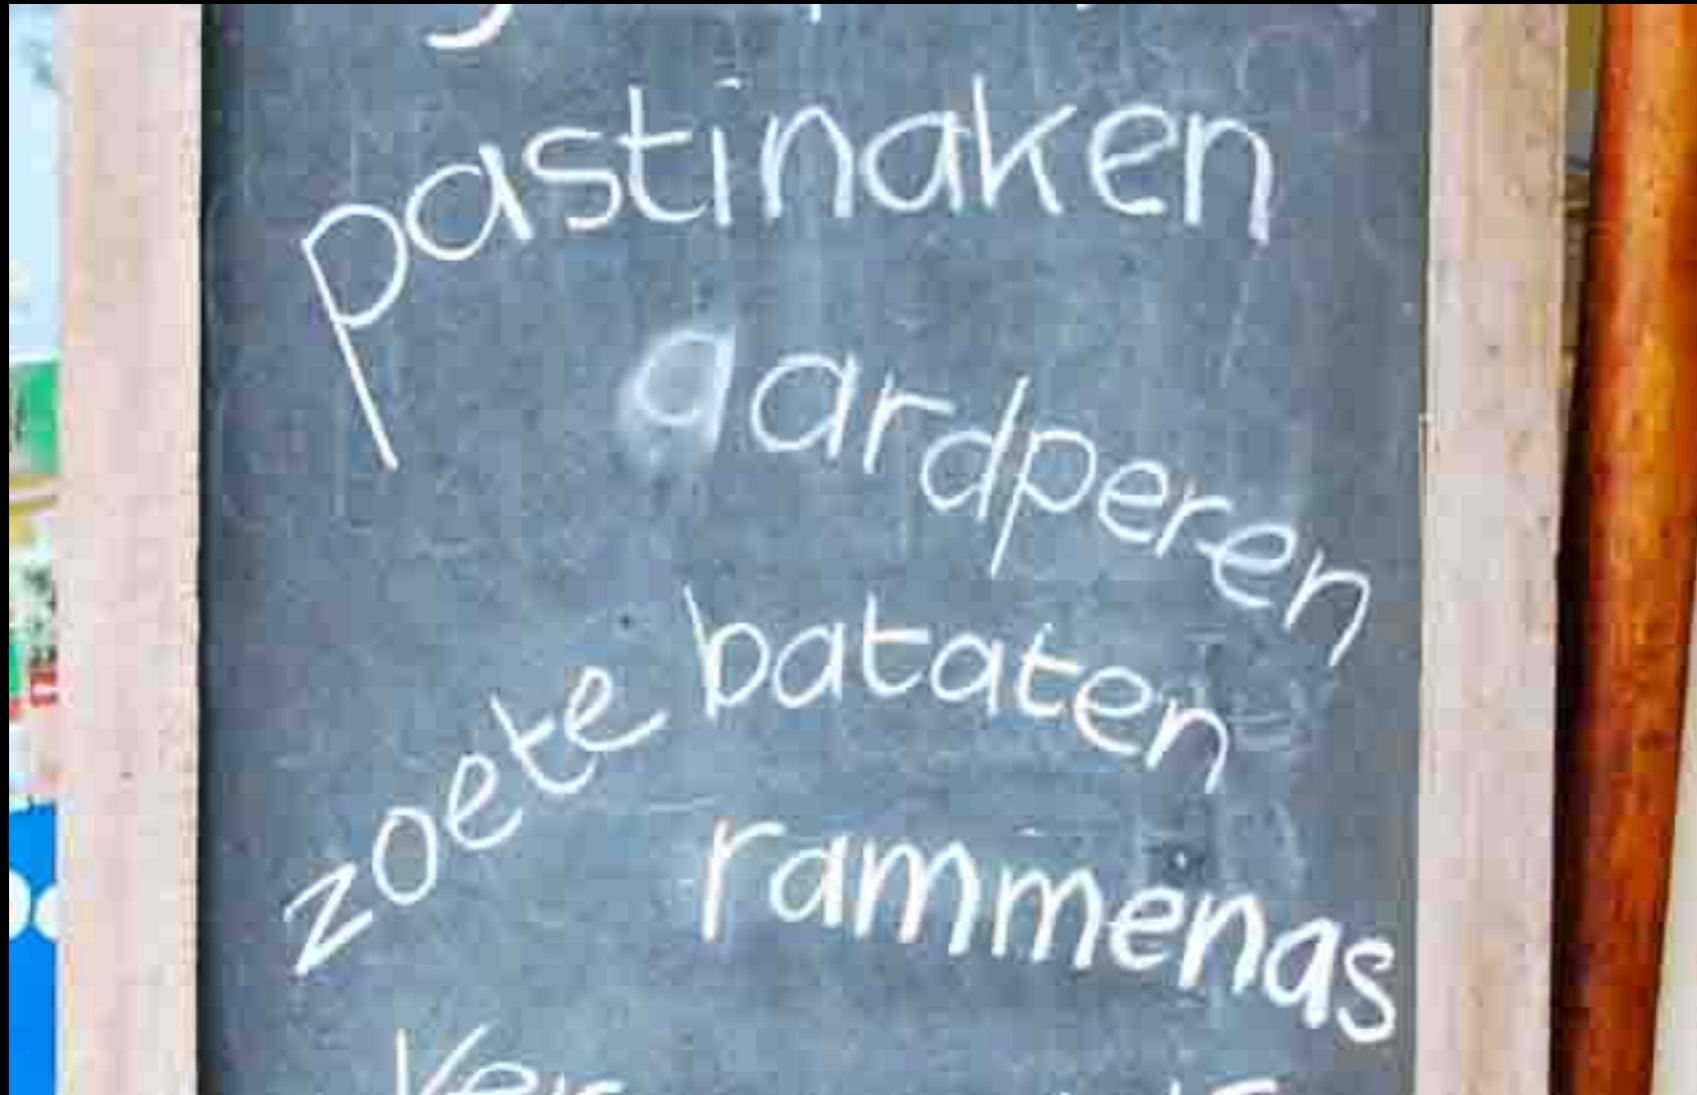 pastinaken
aardperen
zoete bataten
rammenas